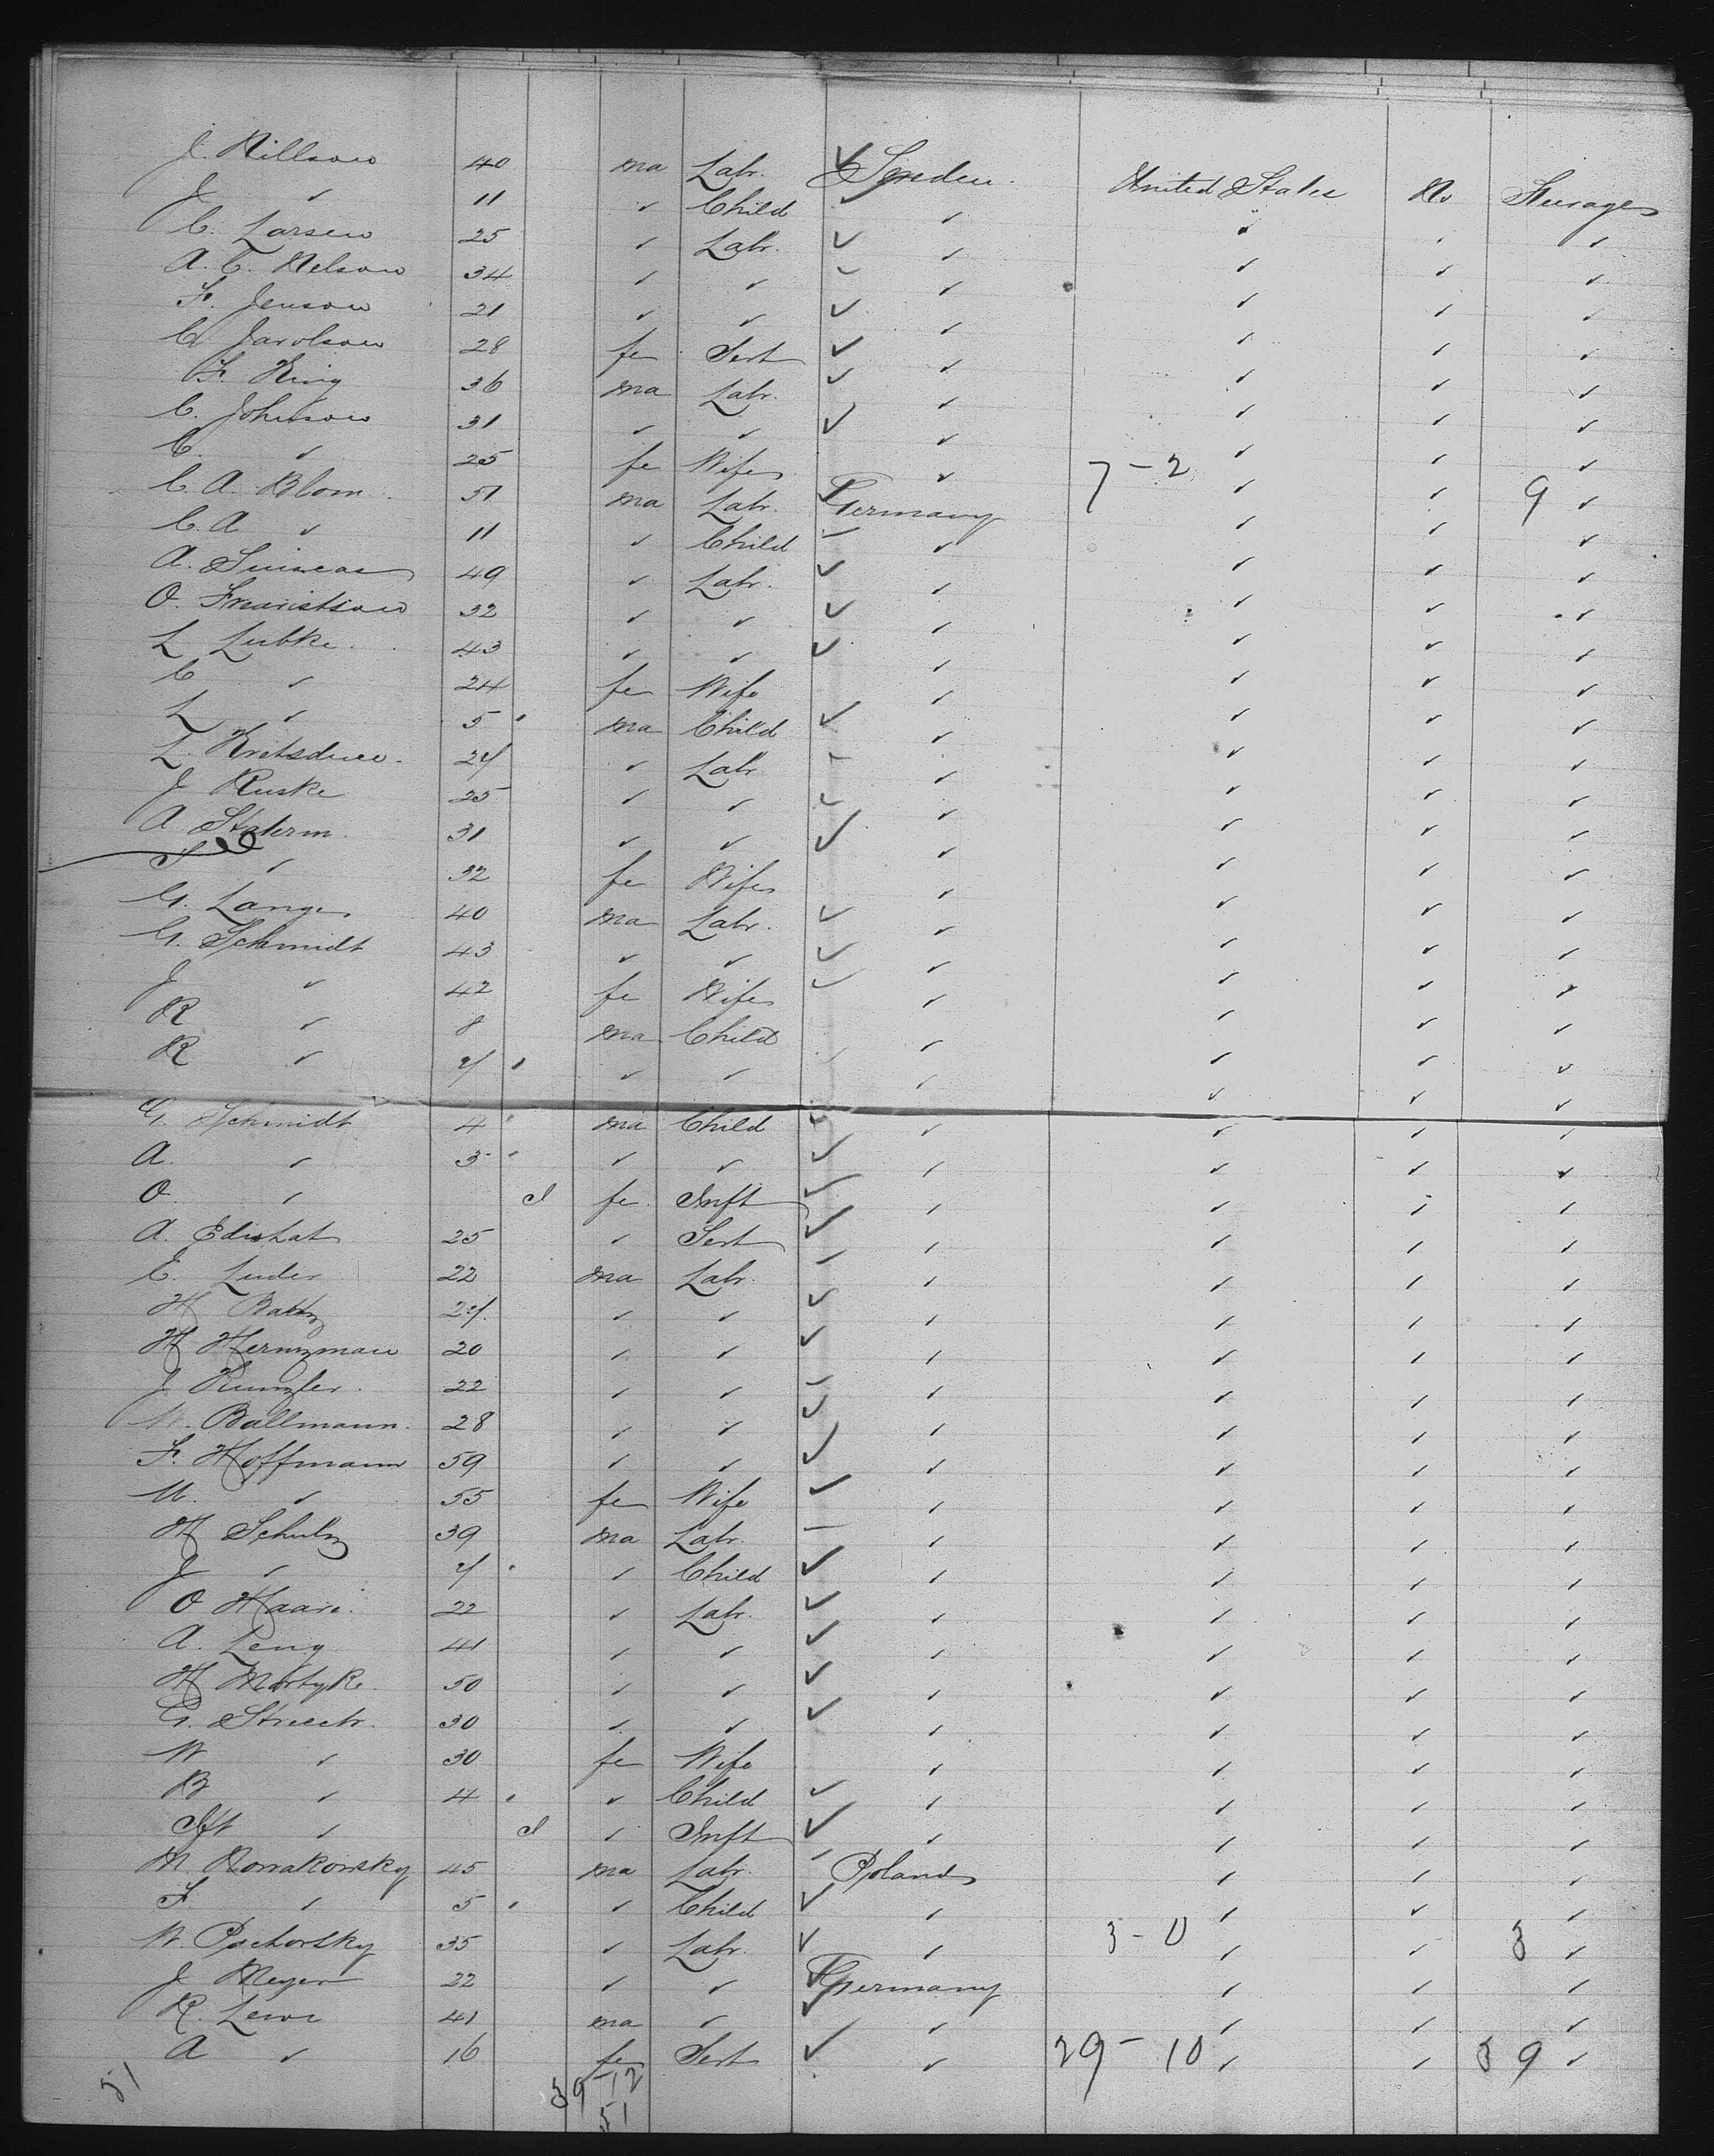 J. Nillson 40 ma Labr. ✓ Sweden. United States No Steerage
J ✓ 11 ✓ Child ✓ ✓ ✓ ✓ ✓
C. Larsen 25 ✓ Labr. ✓ ✓ ✓ ✓ ✓
A. C. Nelson 34 ✓ ✓ ✓ ✓ ✓ ✓ ✓
F. Jenson 21 ✓ ✓ ✓ ✓ ✓ ✓ ✓
C. Jarolson 28 fe Sert ✓ ✓ ✓ ✓ ✓
F. King 36 ma Labr. ✓ ✓ ✓ ✓ ✓
C. Johnson 31 ✓ ✓ ✓ ✓ ✓ ✓ ✓
C. ✓ 25 fe Wife ✓ 7-2 ✓ ✓ ✓
C. A. Blom 51 ma Labr. ✓ Germany ✓ ✓ 9 ✓
C. A ✓ 11 ✓ Child ✓ ✓ ✓ ✓ ✓
A. 49 ✓ Labr. ✓ ✓ ✓ ✓ ✓
O. 32 ✓ ✓ ✓ ✓ ✓ ✓ ✓
L Lubke. 43 ✓ ✓ ✓ ✓ ✓ ✓ ✓
C ✓ 24 fe Wife ✓ ✓ ✓ ✓
L ✓ 5 ma Child ✓ ✓ ✓ ✓ ✓
L. 24 ✓ Labr ✓ ✓ ✓ ✓ ✓
J Ruske 25 ✓ ✓ ✓ ✓ ✓ ✓ ✓
A 31 ✓ ✓ ✓ ✓ ✓ ✓ ✓
S ✓ 32 fe Wife ✓ ✓ ✓ ✓
G. Lange 40 ma Labr. ✓ ✓ ✓ ✓ ✓
G. Schmidt 43 ✓ ✓ ✓ ✓ ✓ ✓ ✓
J ✓ 42 fe Wife ✓ ✓ ✓ ✓ ✓
R ✓ 8 ma Child ✓ ✓ ✓ ✓
R ✓ 7 ✓ ✓ ✓ ✓ ✓ ✓
G. Schmidt 4 ma Child ✓ ✓ ✓ ✓ ✓
A. ✓ 3 ✓ ✓ ✓ ✓ ✓ ✓ ✓
O. ✓ fe. Inft ✓ ✓ ✓ ✓ ✓
A. 25 ✓ Sert ✓ ✓ ✓ ✓ ✓
E. Luder 22 ma Labr. ✓ ✓ ✓ ✓ ✓
H 24. ✓ ✓ ✓ ✓ ✓ ✓ ✓
H 20 ✓ ✓ ✓ ✓ ✓ ✓ ✓
J 22 ✓ ✓ ✓ ✓ ✓ ✓ ✓
W. Ballmann. 28 ✓ ✓ ✓ ✓ ✓ ✓ ✓
F. Hoffmann 59 ✓ ✓ ✓ ✓ ✓ ✓ ✓
✓ 55 fe Wife ✓ ✓ ✓ ✓ ✓
H Schulz 39 ma Labr. ✓ ✓ ✓ ✓ ✓
J ✓ 7 ✓ Child ✓ ✓ ✓ ✓ ✓
O Haare. 22 ✓ Labr. ✓ ✓ ✓ ✓ ✓
A. Leng 41 ✓ ✓ ✓ ✓ ✓ ✓ ✓
H Martyke. 50 ✓ ✓ ✓ ✓ ✓ ✓ ✓
G. 30 ✓ ✓ ✓ ✓ ✓ ✓ ✓
W ✓ 30 fe Wife ✓ ✓ ✓ ✓
B ✓ 4 ✓ Child ✓ ✓ ✓ ✓ ✓
Ift ✓ ✓ Inft ✓ ✓ ✓ ✓ ✓
M. Nowakowsky 45 ma Labr. ✓ Poland ✓ ✓ ✓
F. ✓ 5 ✓ Child ✓ ✓ ✓ ✓ ✓
W. Pachorsky 35 ✓ Labr. ✓ ✓ 3-0 ✓ ✓ 3 ✓
J Meyer 22 ✓ ✓ ✓ Germany ✓ ✓ ✓
R. 41 ma ✓ ✓ ✓ ✓ ✓ ✓
A ✓ 16 fe Sert ✓ ✓ 29-10 ✓ ✓ 39 ✓
51 39-12
51